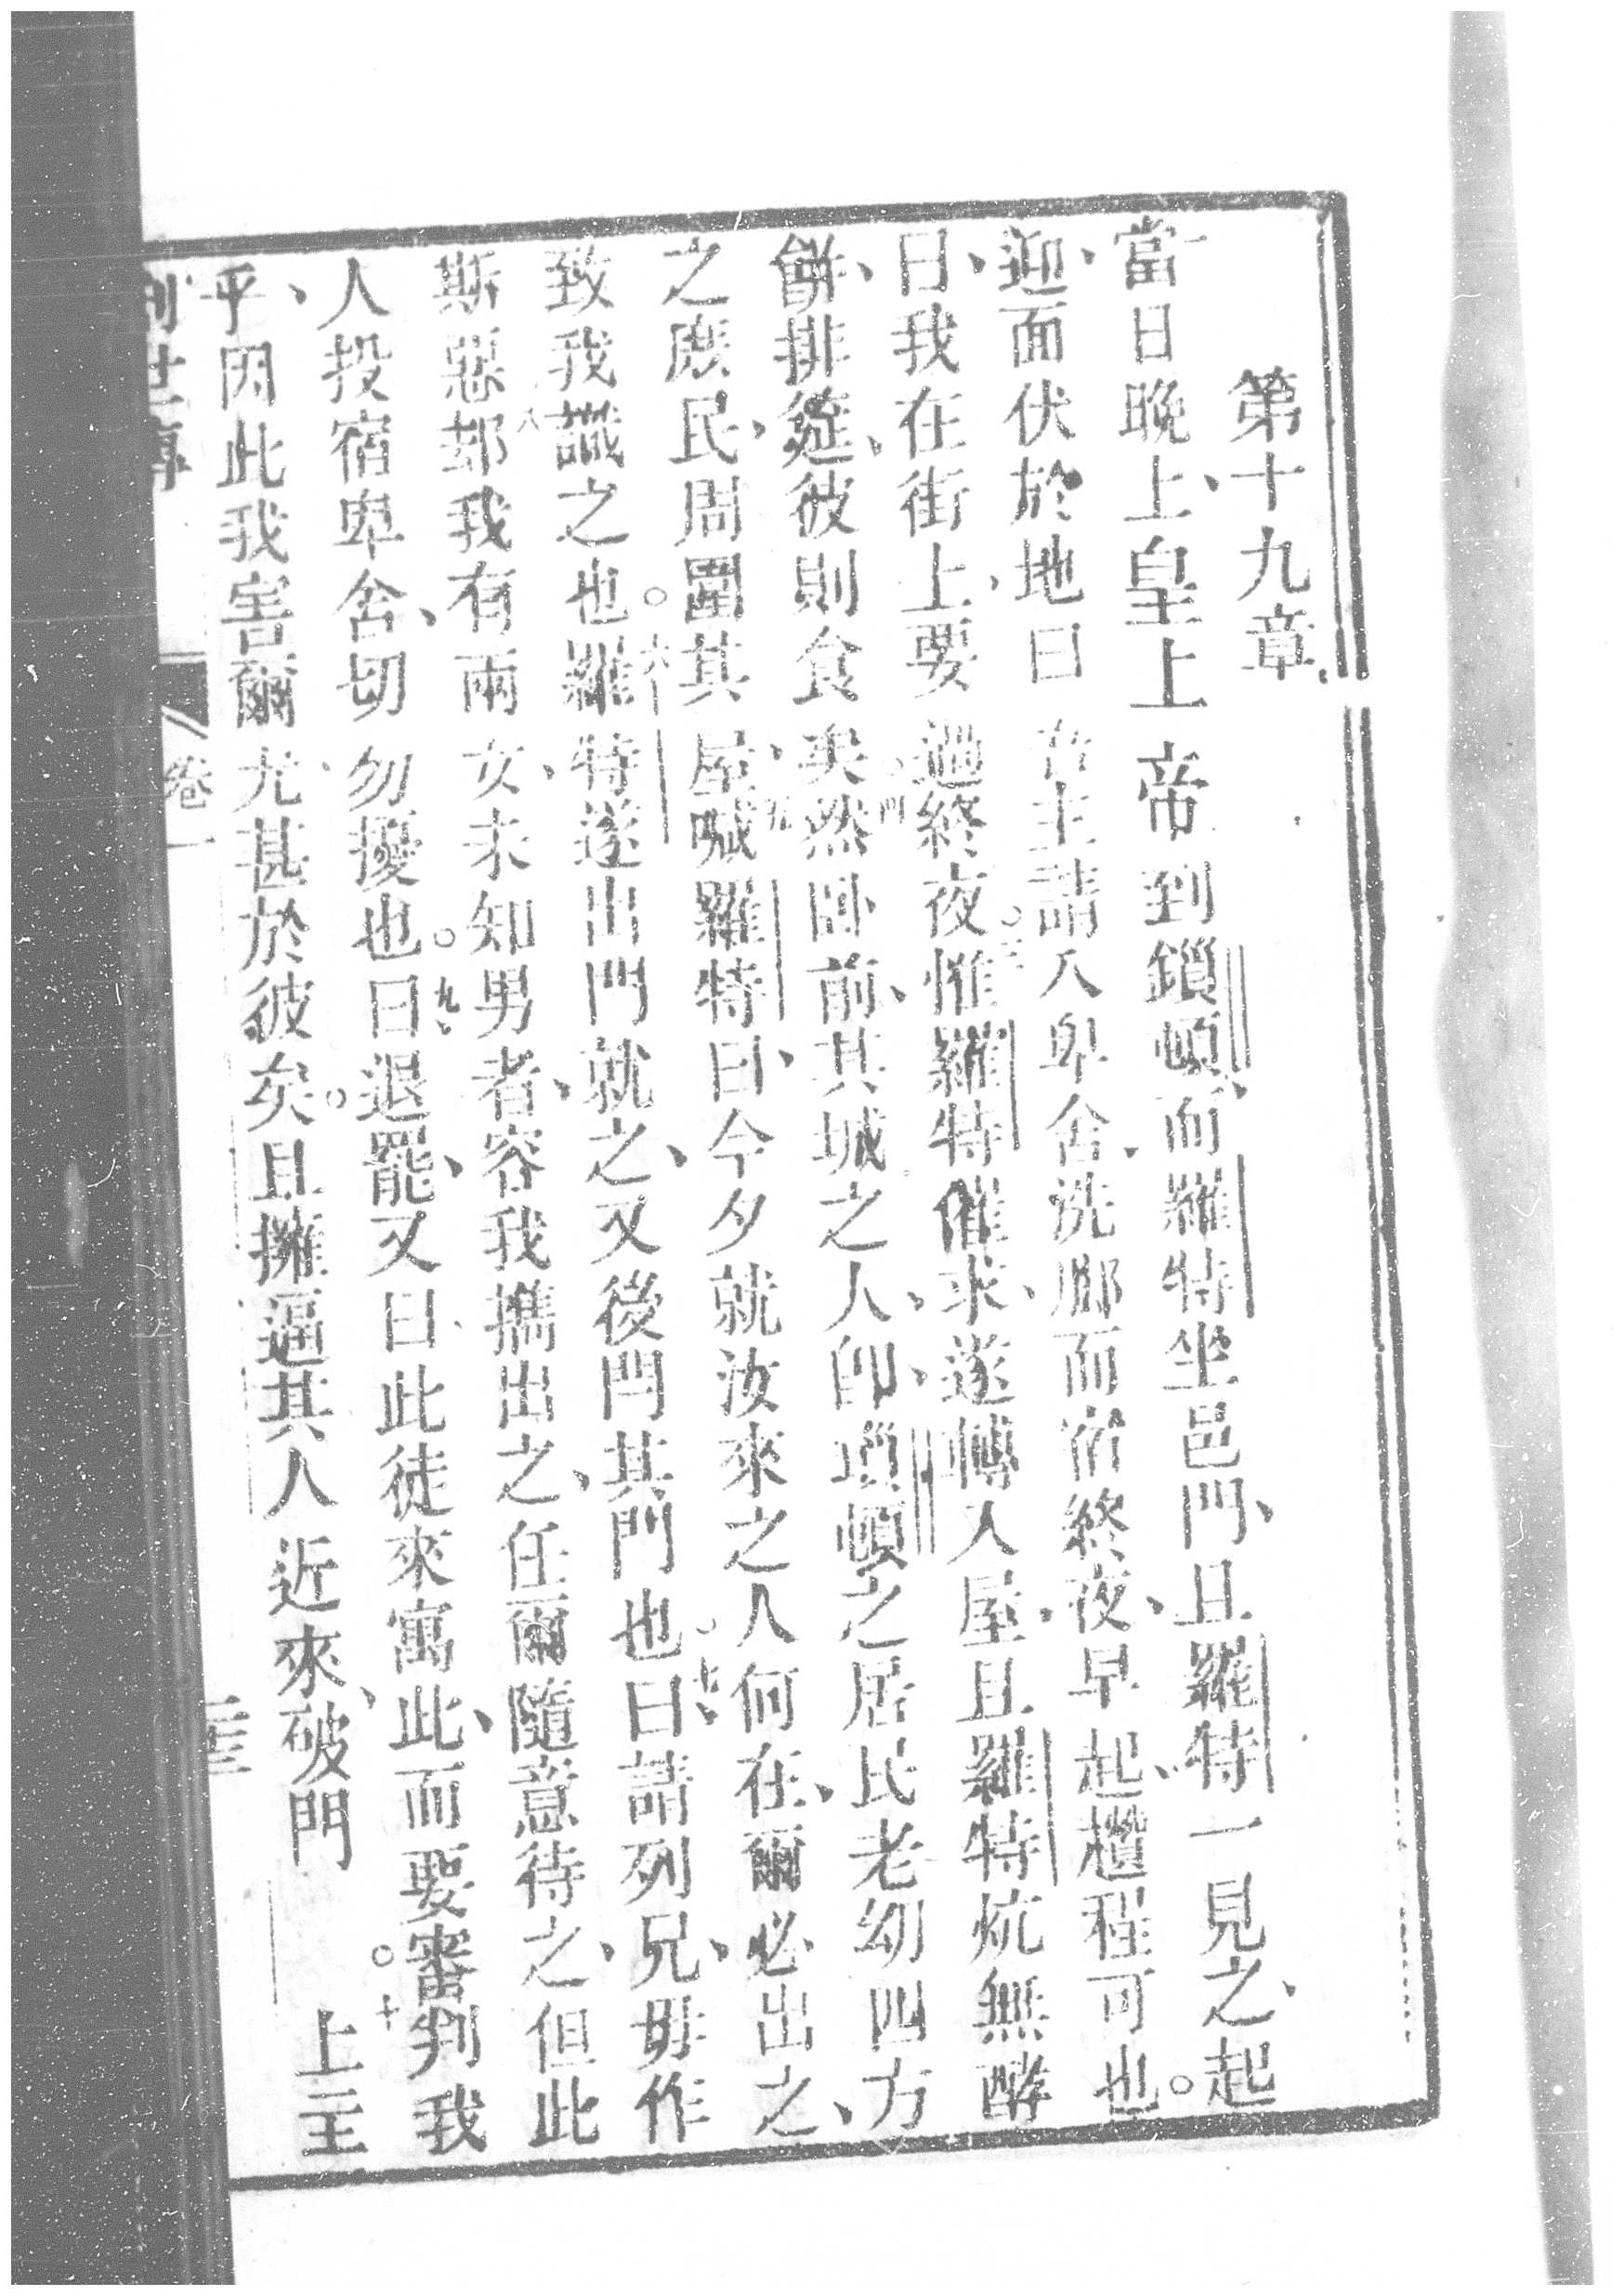 第十九章
一當日晚、上皇上帝到鎖頓、而羅特坐邑門、且羅特一見之、起
迎面伏於地曰吾主請入卑舍、洗脚而宿終夜、早起趲程可也。
曰、我在街上要過終夜。三惟羅特催求、遂轉入屋、且羅特炕無酵
餅、排筵、彼則食矣。四然卧前、其城之人、卽瑣頓之居民老幼四方
之庶民、周圍其屋、五喊羅特曰、今夕就汝來之人何在、爾必出之、
致我識之也。六羅特遂出門就之、又後閂其門也。七曰請列兄、毋作
斯惡、八却我有兩女、未知男者、容我攜出之、任爾隨意待之、但此
人投宿卑舍、切勿擾也。九曰退罷、又曰此徒來寓此、而要審判我
乎、因此我害爾尤甚於彼矣。且擁逼其人近來、破門。十上主
創世傳
卷一